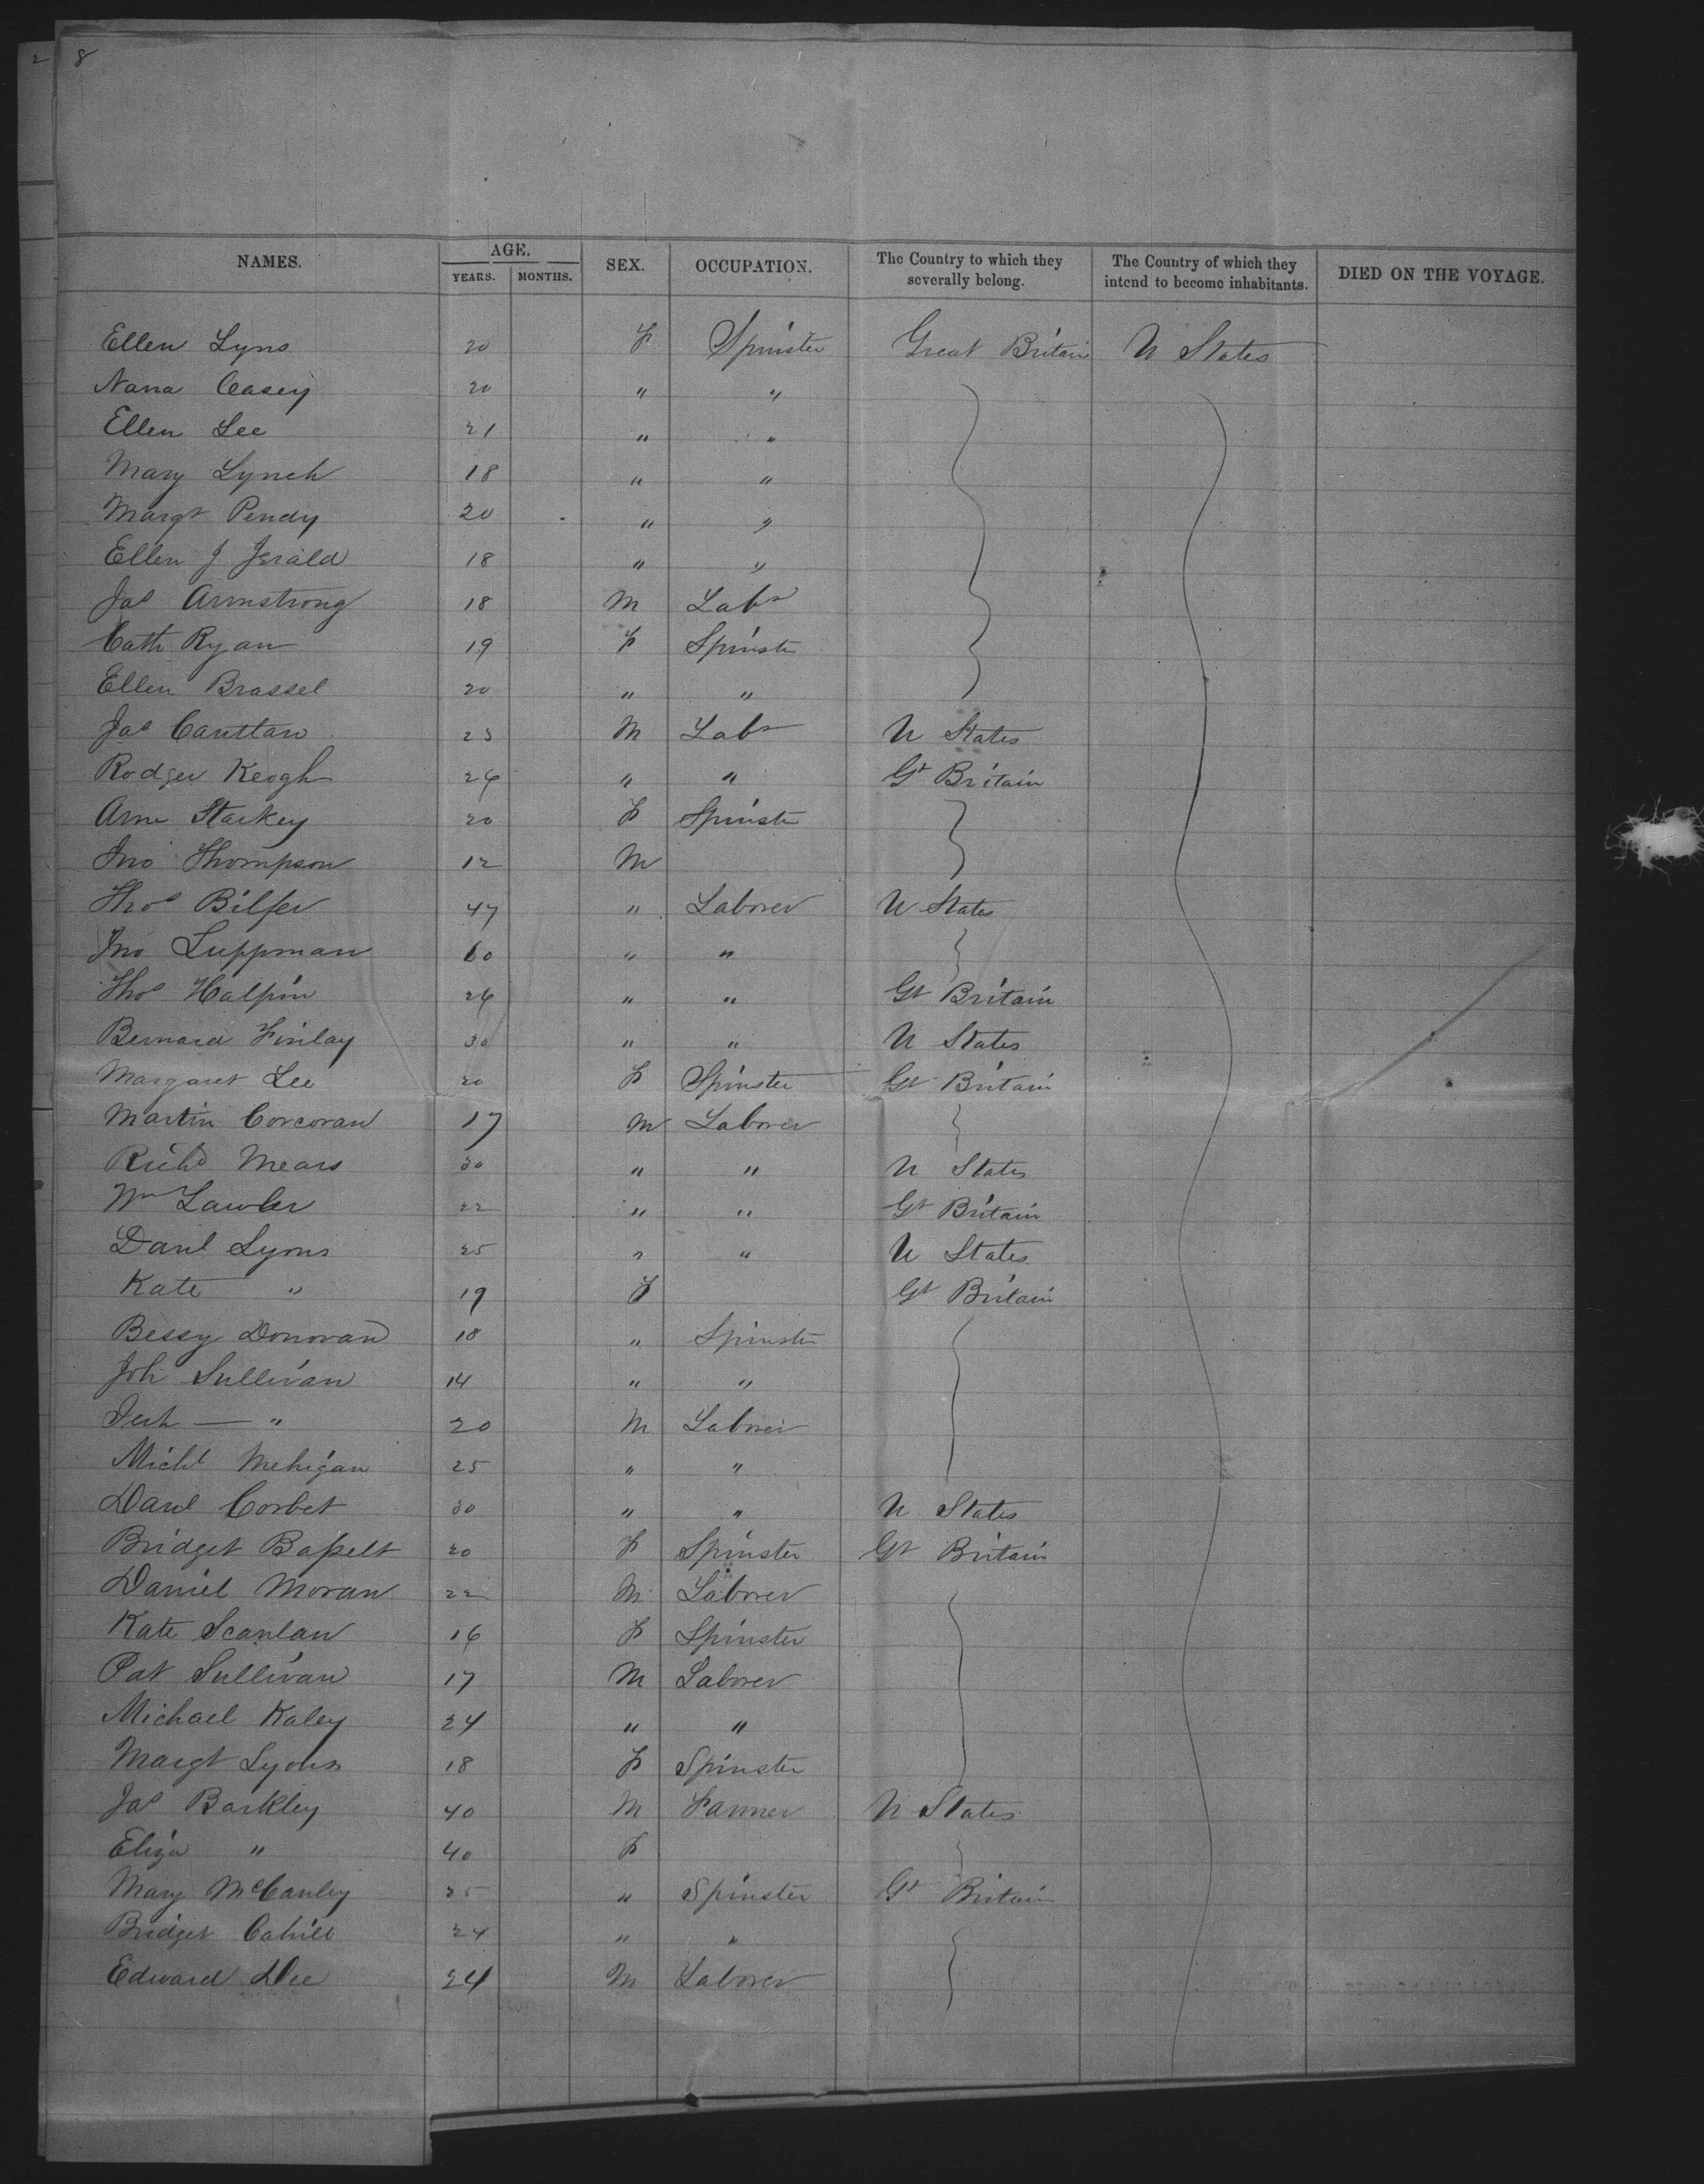 2 8
NAMES. AGE. YEARS. MONTHS. SEX. OCCUPATION. The Country to which they severally belong. The Country of which they intend to become inhabitants. DIED ON THE VOYAGE.
Ellen Lyns 20 F Spinster Great Britain U States
Nana Casey 20 " "
Ellen Lee 21 " "
Mary Lynch 18 " "
Margt Pendy 20 " "
Ellen J Jerald 18 " "
Jas Armstrong 18 M Labr
Cath Ryan 19 F Spinste
Ellen Brassel 20 " "
Jas 23 M Labr U States
Rodger Keogh 24 " " Gt Britain
Ann Starkey 20 F Spinste
Jno Thompson 12 M
Thos Bilfer 47 " Laborer U States
Jno Luppman 60 " "
Thos Halpin 26 " " Gt Britain
Bernard Finlay 30 " " U States
Margaret Lee 20 F Spinster Gt Britain
Martin Corcoran 17 M Laborer
Richd Mears 30 " " U States
Wm Lawler 22 " " Gt Britain
Danl Lyons 25 " " U States
Kate " 19 F Gt Britain
Bessy Donovan 18 " Spinster
Joh Sullivan 14 " "
Jerh — " 20 M Laborer
Michl Mehigan 25 " "
Danl Corbet 30 " " U States
Bridget 20 F Spinster Gt Britain
Daniel Moran 22 M Laborer
Kate Scanlan 16 F Spinster
Pat Sullivan 17 M Laborer
Michael Kaley 24 " "
Margt Lyons 18 F Spinster
Jas Barkley 40 M Farmer U States
Eliza " 40 F
Mary McCauley 25 " Spinster Gt Britain
Bridget Cahill 24 " "
Edward Dee 24 M Laborer